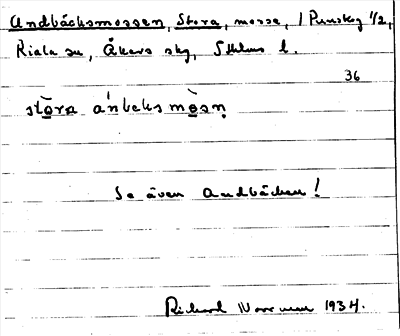 Andbäcksmossen, Stora, mosse, / Penskog 1/2,
Riala sn, Åkers skg, Sthlms l.
36
stòra ánbeks mòsṇ
Se även Andbäcken!
Richard Norrman 1934.